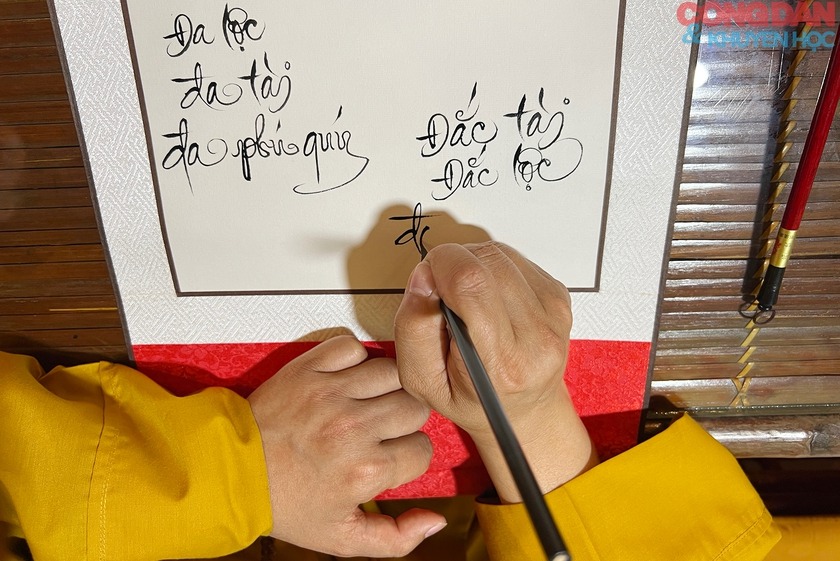 Đa lộc
đa tài
đa phú quý
Đắc tài
Đắc lộc
CÔNG DÂN
& KHUYẾN HỌC